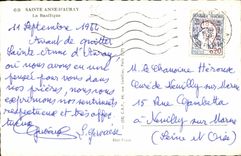 SAINTE-ANNE-D'AURAY
La Basilique
11 Septembre 1966
Avant de quitter
Sainte Anne d'Auray
où nous avons eu une
pensée pour vous dans
nos prières, nous vous
exprimons nos sentiments
respectueux et très affec
tueux
M. le Chanoine
Curé de Neuilly sur Marne
15 Rue Gambetta
à Neuilly sur Marne
(Seine et Oise)